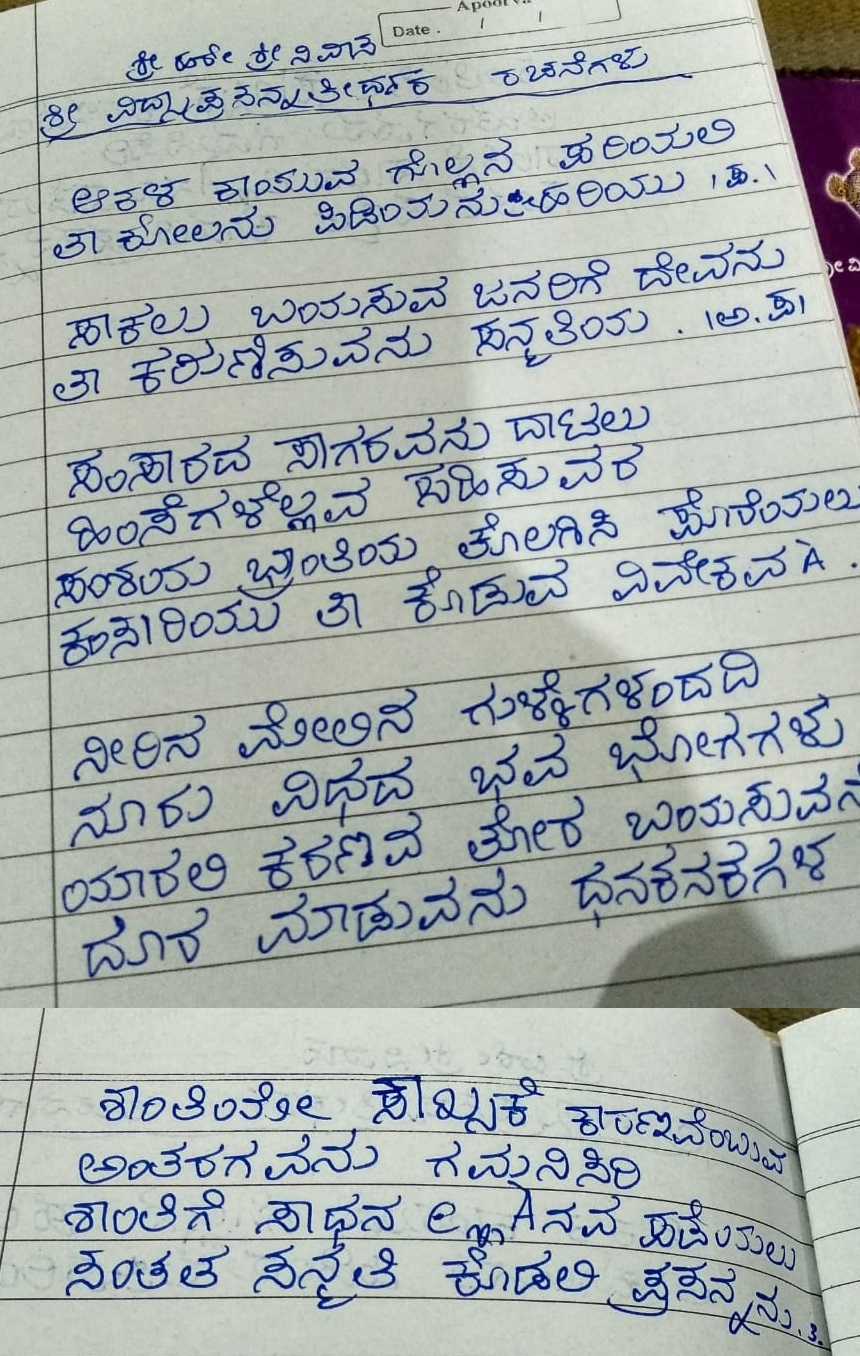 Apoorva
Date .    /    /
ಶ್ರೀ ಹರೇ ಶ್ರೀನಿವಾಸ
ಶ್ರೀ ವಿದ್ಯಾಪ್ರಸನ್ನತೀರ್ಥರ ರಚನೆಗಳು
ಆಕಳ ಕಾಯುವ ಗೊಲ್ಲನ ಪರಿಯಲಿ
ತಾ ಕೋಲನು ಪಿಡಿಯನು ಹರಿಯು ।ಪ.।
ಸಾಕಲು ಬಯಸುವ ಜನರಿಗೆ ದೇವನು
ತಾ ಕರುಣಿಸುವನು ಸನ್ಮತಿಯ . ।ಅ.ಪ।
ಸಂಸಾರದ ಸಾಗರವನು ದಾಟಲು
ಹಿಂಸೆಗಳೆಲ್ಲವ ಸಹಿಸುವರ
ಸಂಶಯ ಭ್ರಾಂತಿಯ ತೊಲಗಿಸಿ ಪೊರೆಯಲು
ಕಂಸಾರಿಯು ತಾ ಕೊಡುವ ವಿವೇಕವ .
ನೀರಿನ ಮೇಲಿನ ಗುಳ್ಳೆಗಳಂದದಿ
ನೂರು ವಿಧದ ಭವ ಭೋಗಗಳು
ಯಾರಲಿ ಕರಣವ ತೋರ ಬಯಸುವನೆ
ದೂರ ಮಾಡುವನು ಧನಕನಕಗಳ
ಶಾಂತಿಯೇ ಸೌಖ್ಯಕೆ ಕಾರಣವೆಂಬುವ
ಅಂತರಗವನು ಗಮನಿಸಿರಿ
ಶಾಂತಿಗೆ ಸಾಧನ ಪಡೆಯಲು
ಸಂತತ ಸನ್ಮತಿ ಕೊಡಲಿ ಪ್ರಸನ್ನನು.3.